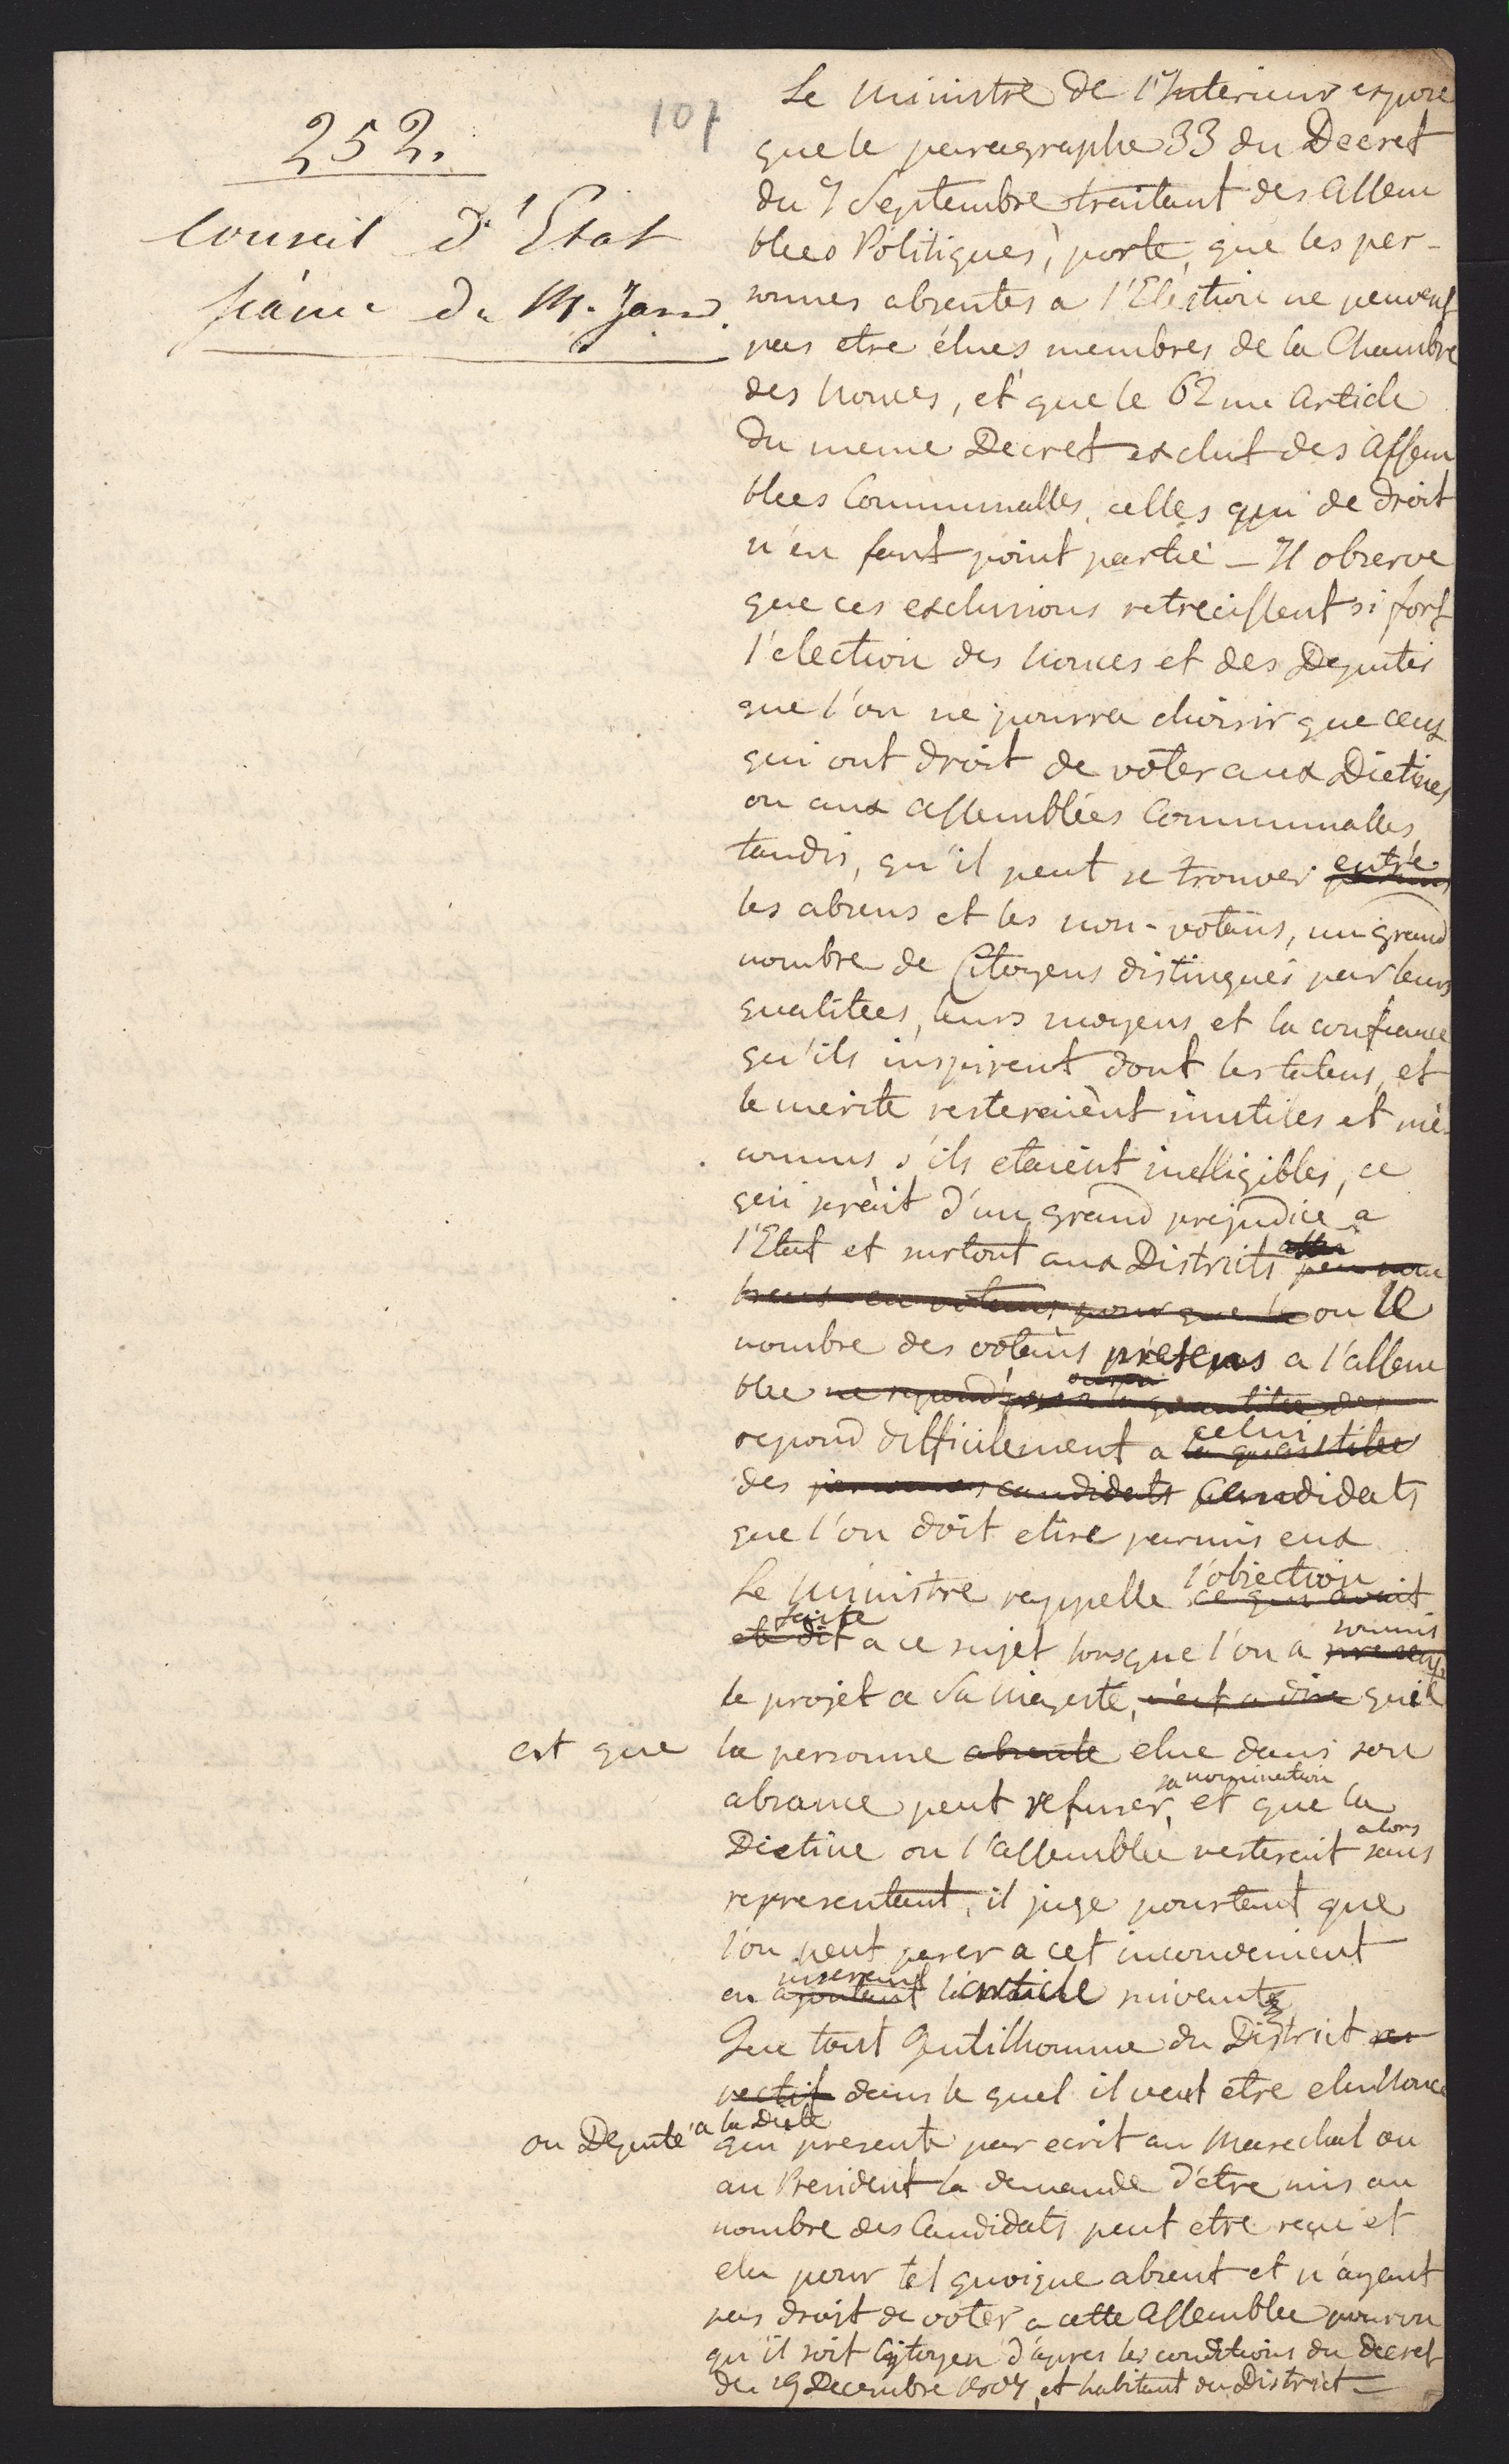 107
252.
Conseil d'Etat
séance du 14. Janv.
Le Ministre de l'Interieur expose
que le paragraphe 33 du Decret
du 7 Septembre traitant des Assem
blees Politiques, porte, que les per-
sonnes absentes a l'Election ne peuvent
pas etre élues membres de la Chambre
des Nonces, et que le 62 me Article
du meme Decret exclut des Assem
blees Communalles, celles qui de droit
n'en font point partie - Il observe
que ces exclusions retrecissent si fort
l'election des Nonces et des Deputés
que l'on ne pourra choisir que ceux
qui ont droit de voter aux Dietines
ou aux Assemblées Communalles
tandis, qu'il peut se trouver entre
les absens et les non-votans, un grand
nombre de Citoyens distingués par leurs
qualitees, leurs moyens et la confiance
qu'ils inspirent dont les talens, et
le merite resteraient inutiles et mé-
connus s'ils etaient inelligibles, ce
qui serait d'un grand prejudice a
l'Etat et surtout aux Districts peu nom
breux en votans pour que le ou le
nombre des votans présens a l'assem
blee ne repond pas a la quantitee des
repond difficilement a la quantitee celui
des personnes candidats Candidats
que l'on doit elire parmis eux
Le Ministre rappelle ce qui avait l'objection
eté dit faite a ce sujet lorsque l'on a soumis
le projet a Sa Majesté, c'est a dire que
est que la personne absente elue dans son
absance peut refuser sa nomination, et que la
Dietine ou l'assemblee resterait alors sans
representant, il juge pourtant que
l'on peut parer a cet inconvenient
en ajoutant inserant l'article suivant
Que tout Gentilhomme du District res
pectif dans le quel il veut etre elu Nonce
ou Deputé a la Diete qui presente par ecrit au Marechal ou
au President la demande d'etre mis au
nombre des Candidats peut etre reçu et
elu pour tel quoique absent et n'ayant
pas droit de voter a cette Assemblee pourvu
qu'il soit Citoyen d'apres les conditions du Decret
du 19 Decembre 1807, et habitant du District -